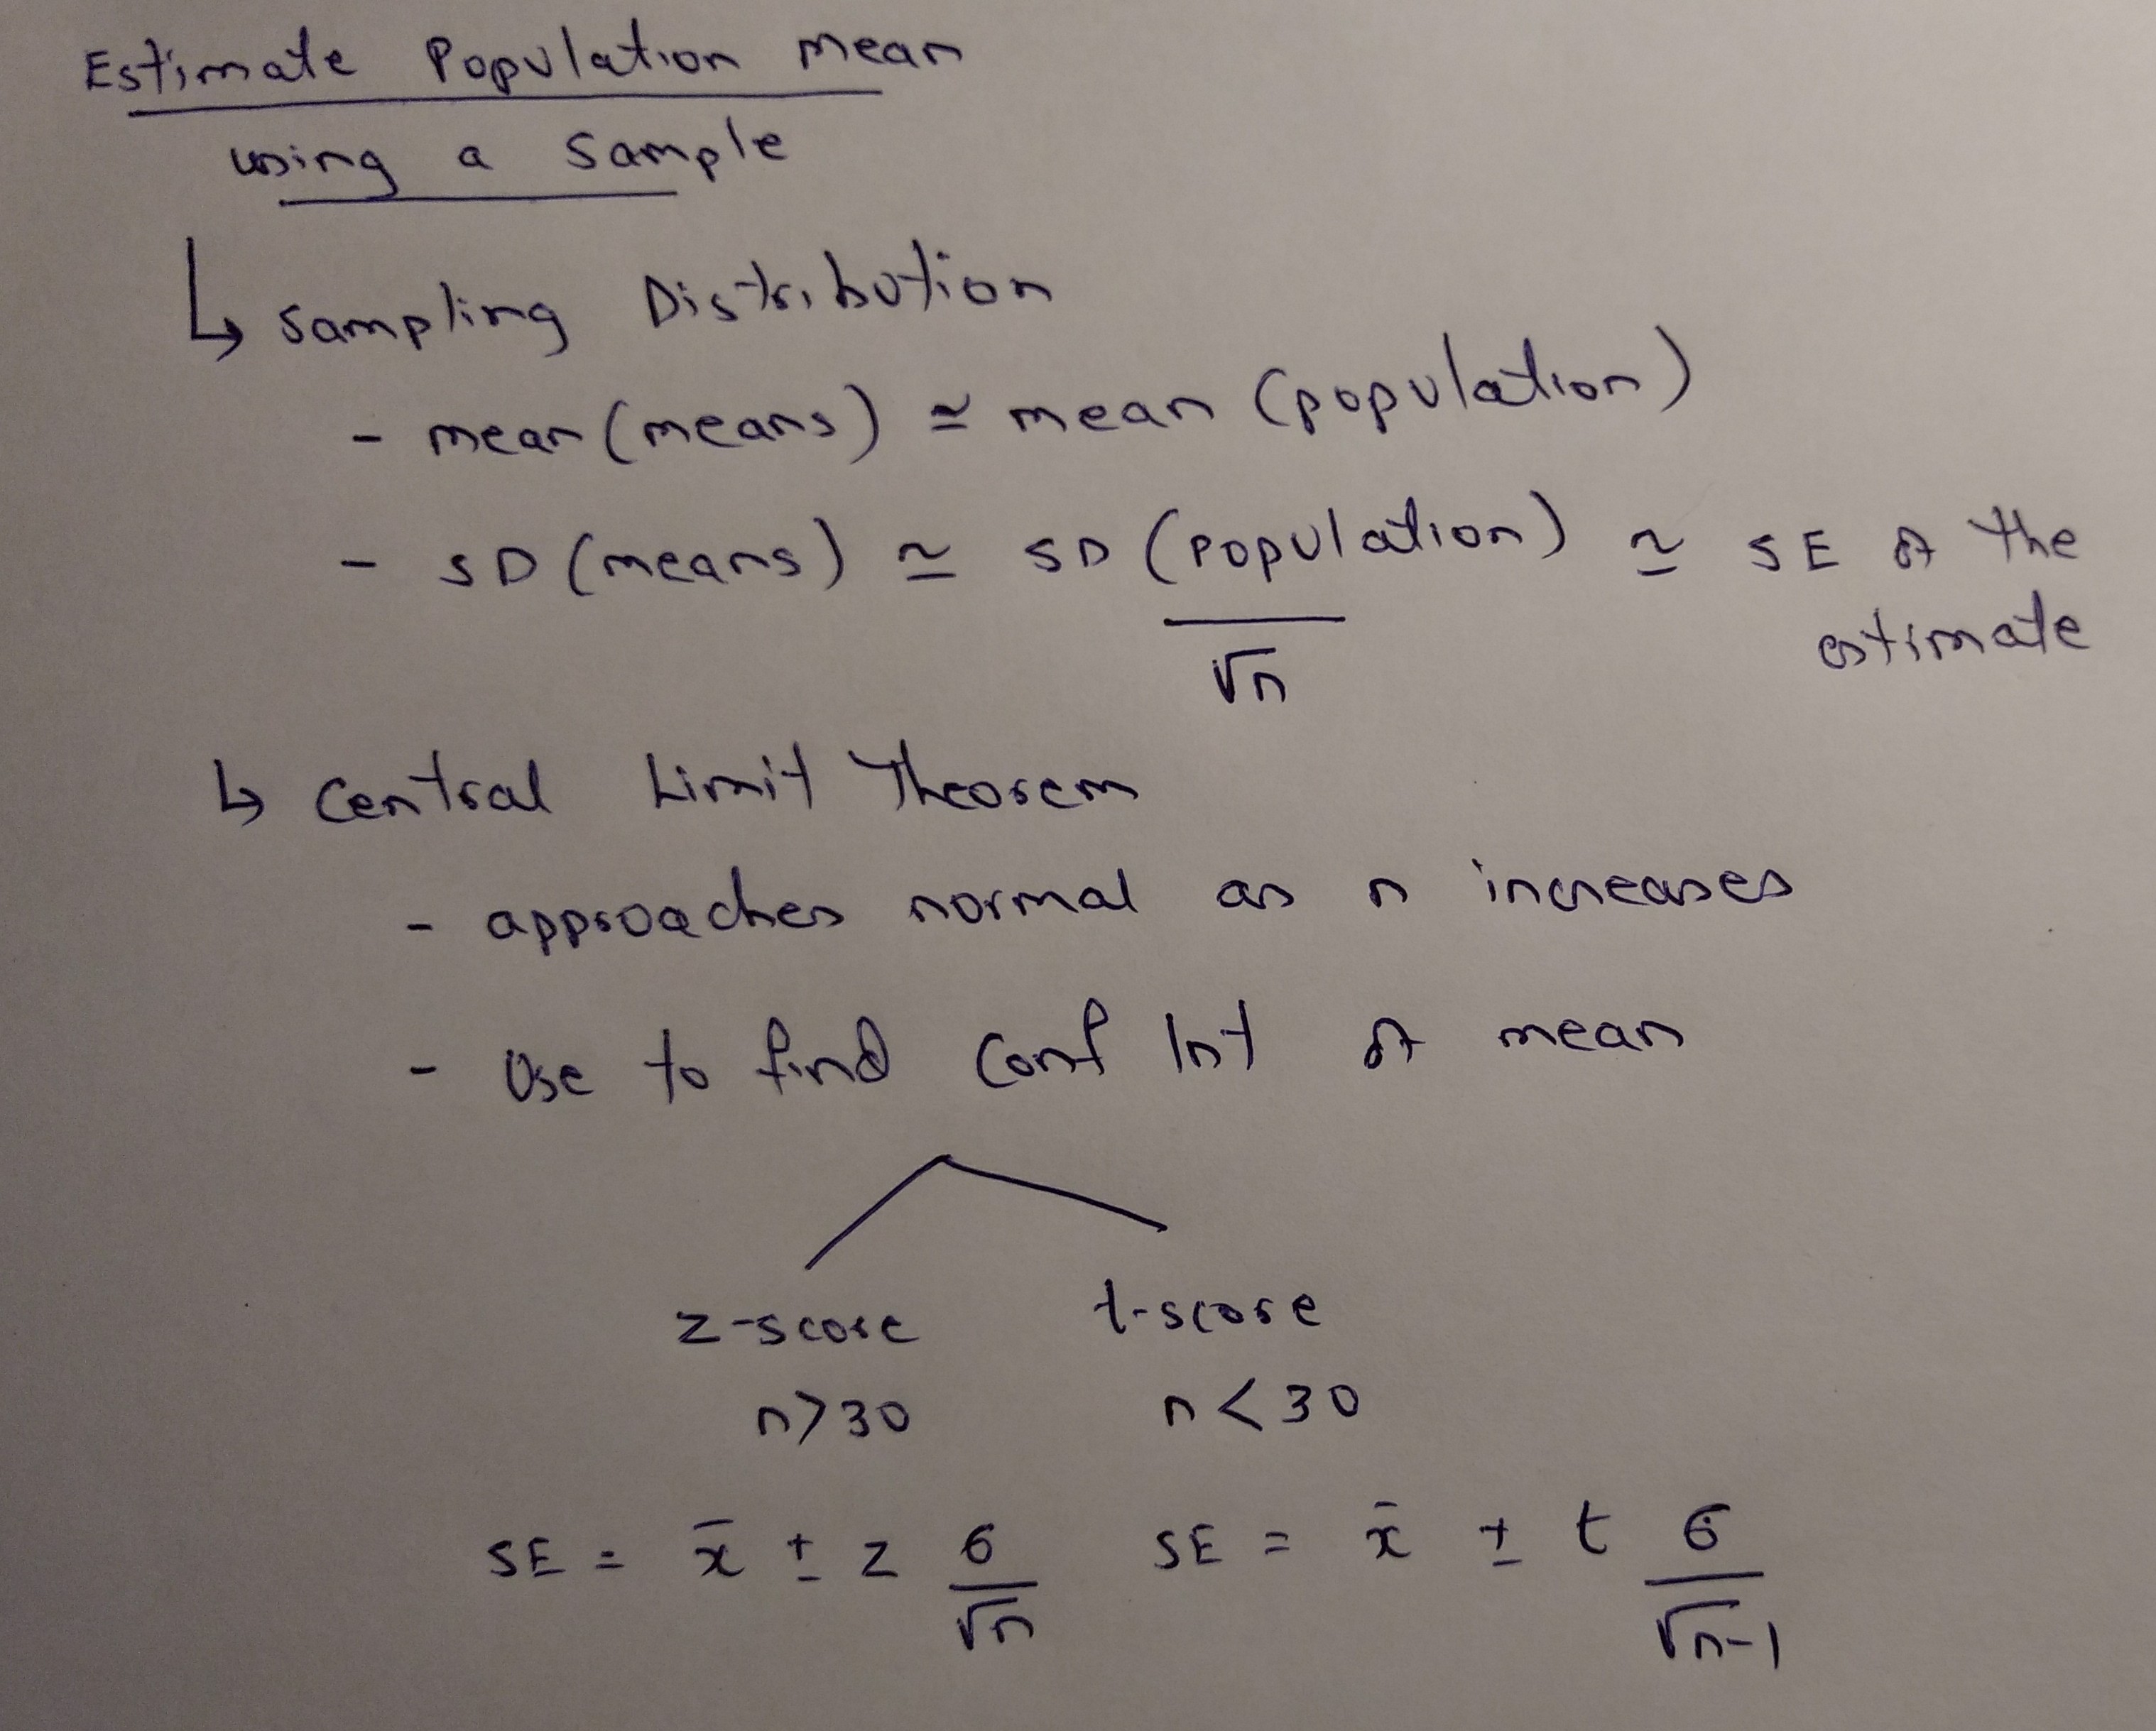 Estimate Population mean
using a sample
↳ Sampling Distribution
- mean (means) ≃ mean (population)
- SD (means) ≃ SD (population) / √n ≃ SE of the estimate
↳ Central Limit Theorem
- approaches normal as n increases
- Use to find Conf Int of mean
z-score t-score
n>30 n<30
SE = x̄ ± z σ/√n SE = x̄ ± t σ/√n-1